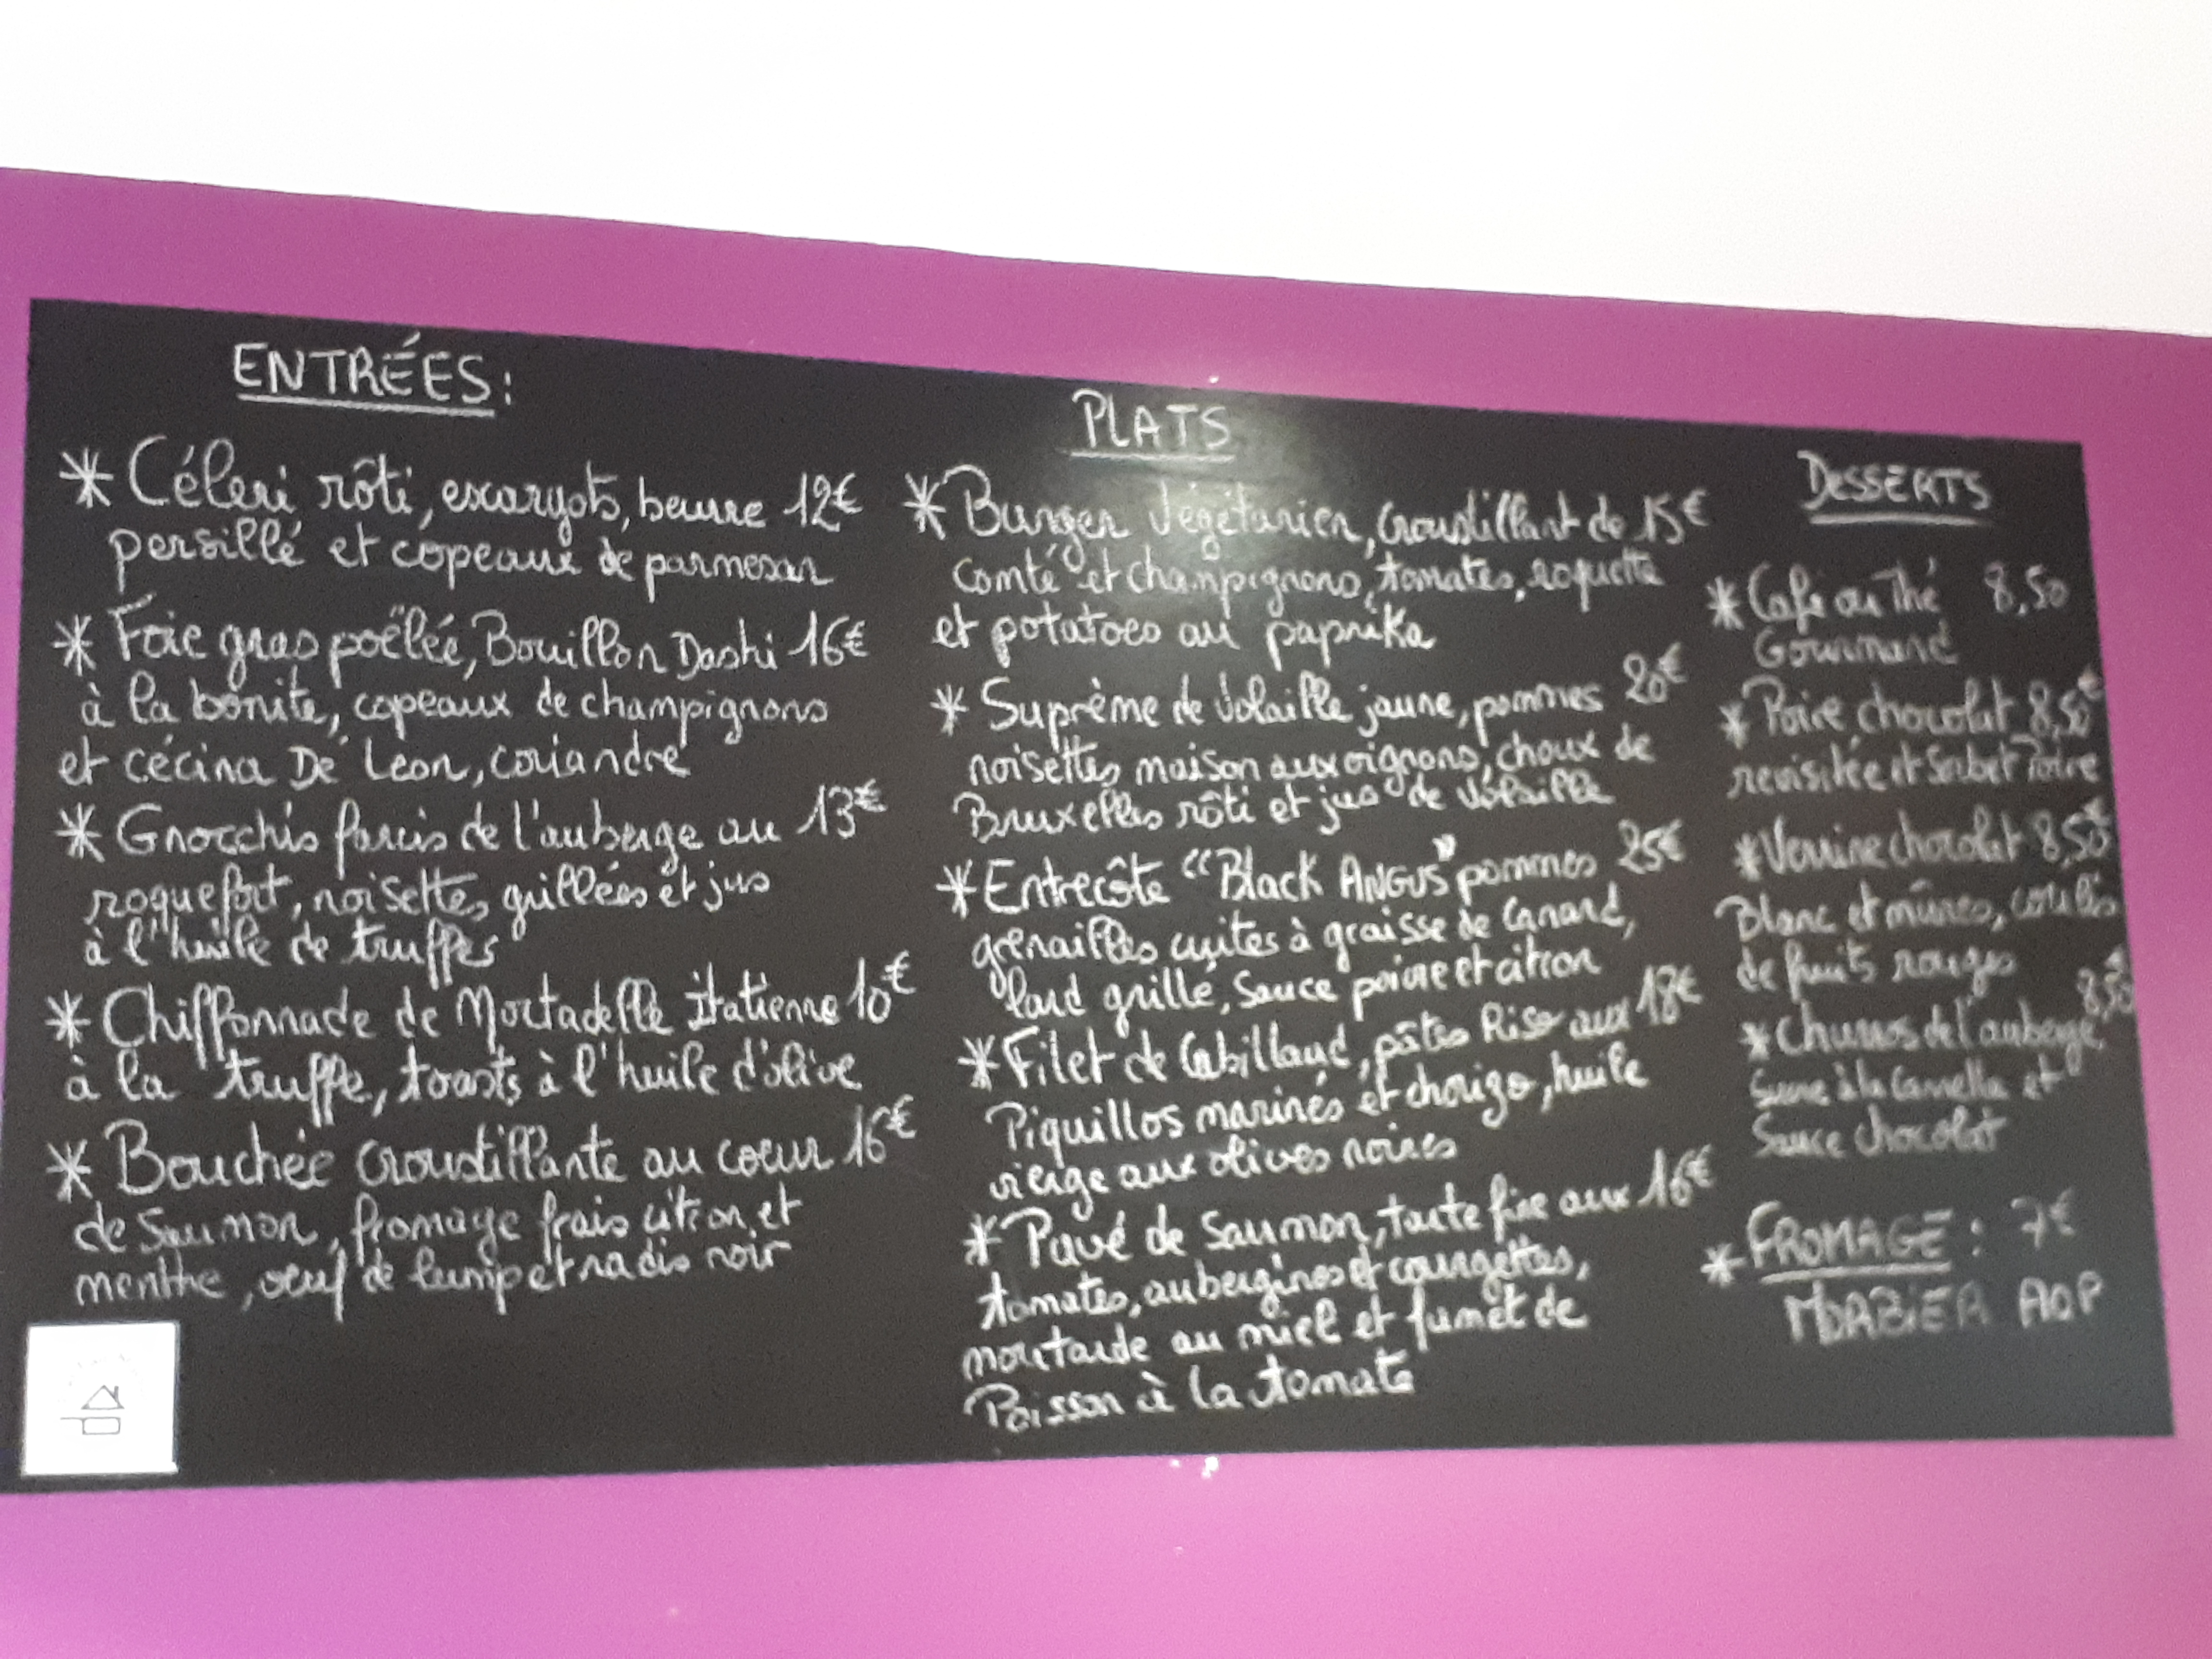 ENTRÉES:
* Céleri rôti, escargots, beurre 12€
persillé et copeaux de parmesan
* Foie gras poëlée, Bouillon Dashi 16€
à la bonite, copeaux de champignons
et cécina De Leon, coriandre
* Gnocchis farcis de l'auberge au 13€
roquefort, noisettes grillées et jus
à l'huile de truffes
* Chiffonnade de Mortadelle Italienne 10€
à la truffe, toasts à l'huile d'olive
* Bouchée croustillante au coeur 16€
de Saumon, fromage frais citron et
menthe, oeuf de lump et radis noir
PLATS
* Burger Végétarien, Croustillant de 15€
Comté et champignons, tomates, roquette
et potatoes au paprika
* Suprème de Volaille jaune, pommes 20€
noisettes maison aux oignons, choux de
Bruxelles rôti et jus de Volaille
* Entrecôte "Black ANGUS" pommes 25€
grenailles cuites à graisse de Canard,
lard grillé, Sauce poivre et citron
* Filet de Cabillaud, pâtes Riso aux 18€
Piquillos marinés et chorizo, huile
vierge aux olives noires
* Pavé de Saumon, tarte fine aux 16€
tomates, aubergines et courgettes,
moutarde au miel et fumet de
Poisson à la tomate
DESSERTS
* Café ou Thé 8,50
Gourmand
* Poire chocolat 8,50€
revisitée et Sorbet Poire
* Verrine chocolat 8,50€
Blanc et mûres, coulis
de fruits rouges
8,50€
* Churros de l'auberge,
Sucre à la Cannella et
Sauce chocolat
* FROMAGE: 7€
MORBIER AOP